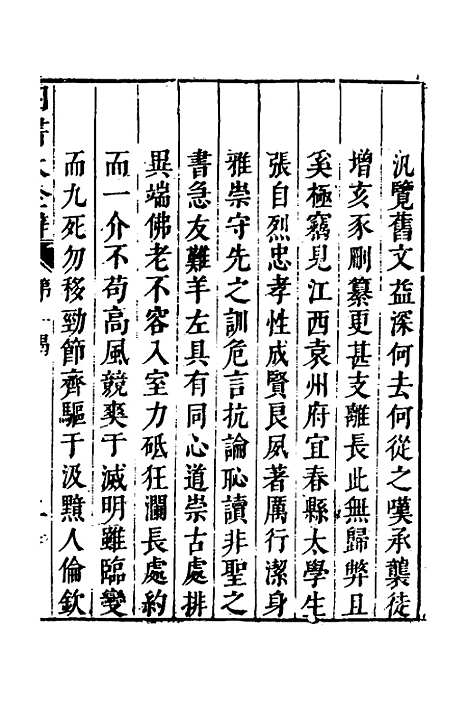 汎覽舊文益深何去何從之嘆承襲徒
增亥豕刪纂更甚支離長此無歸弊且
奚極竊見江西袁州府宜春縣太學生
張自烈忠孝性成賢良夙著厲行潔身
雅崇守先之訓危言抗論恥讀非聖之
書急友難羊左具有同心道崇古處排
異端佛老不容入室力砥狂瀾長處約
而一介不苟高風競爽于滅明雖臨變
而九死勿移勁節齊驅于汲黯人倫欽
書大全辯